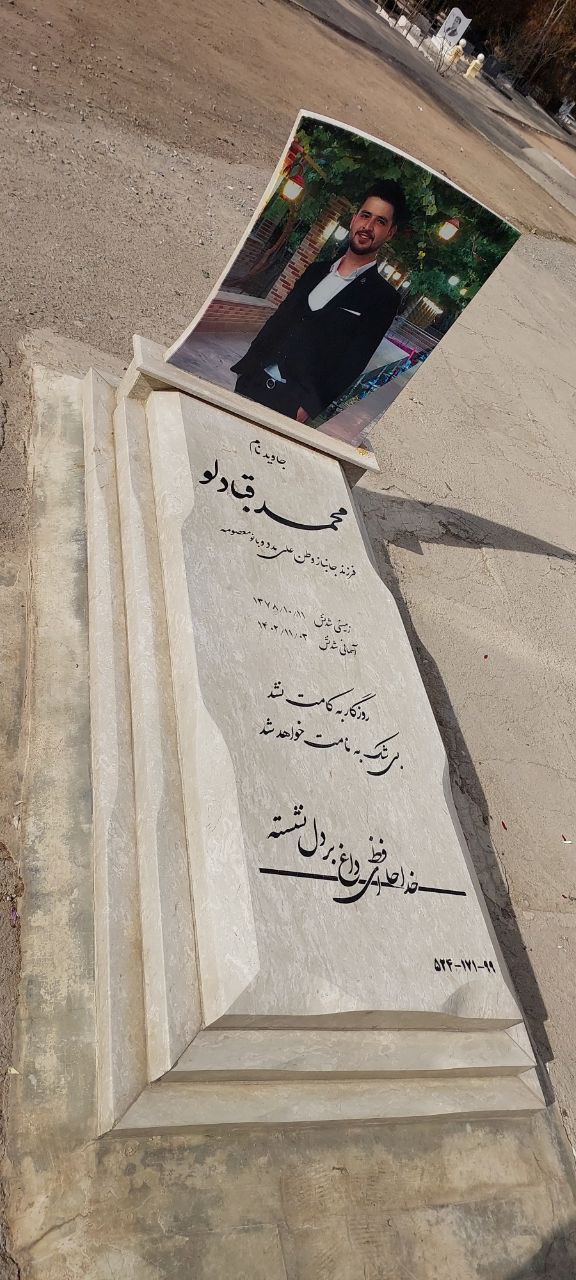 جاوید نام
محمد قبادلو
فرزند جانباز وطن علی مدد و بانو معصومه
زمینی شدنش ۱۳۷۸/۱۰/۱۱
آسمانی شدنش ۱۴۰۲/۱۱/۰۳
روزگار به کامت نشد
بی شک به نامت خواهد شد
خداحافظ
ای داغ بر دل نشسته
۵۲۴-۱۷۱-۹۹